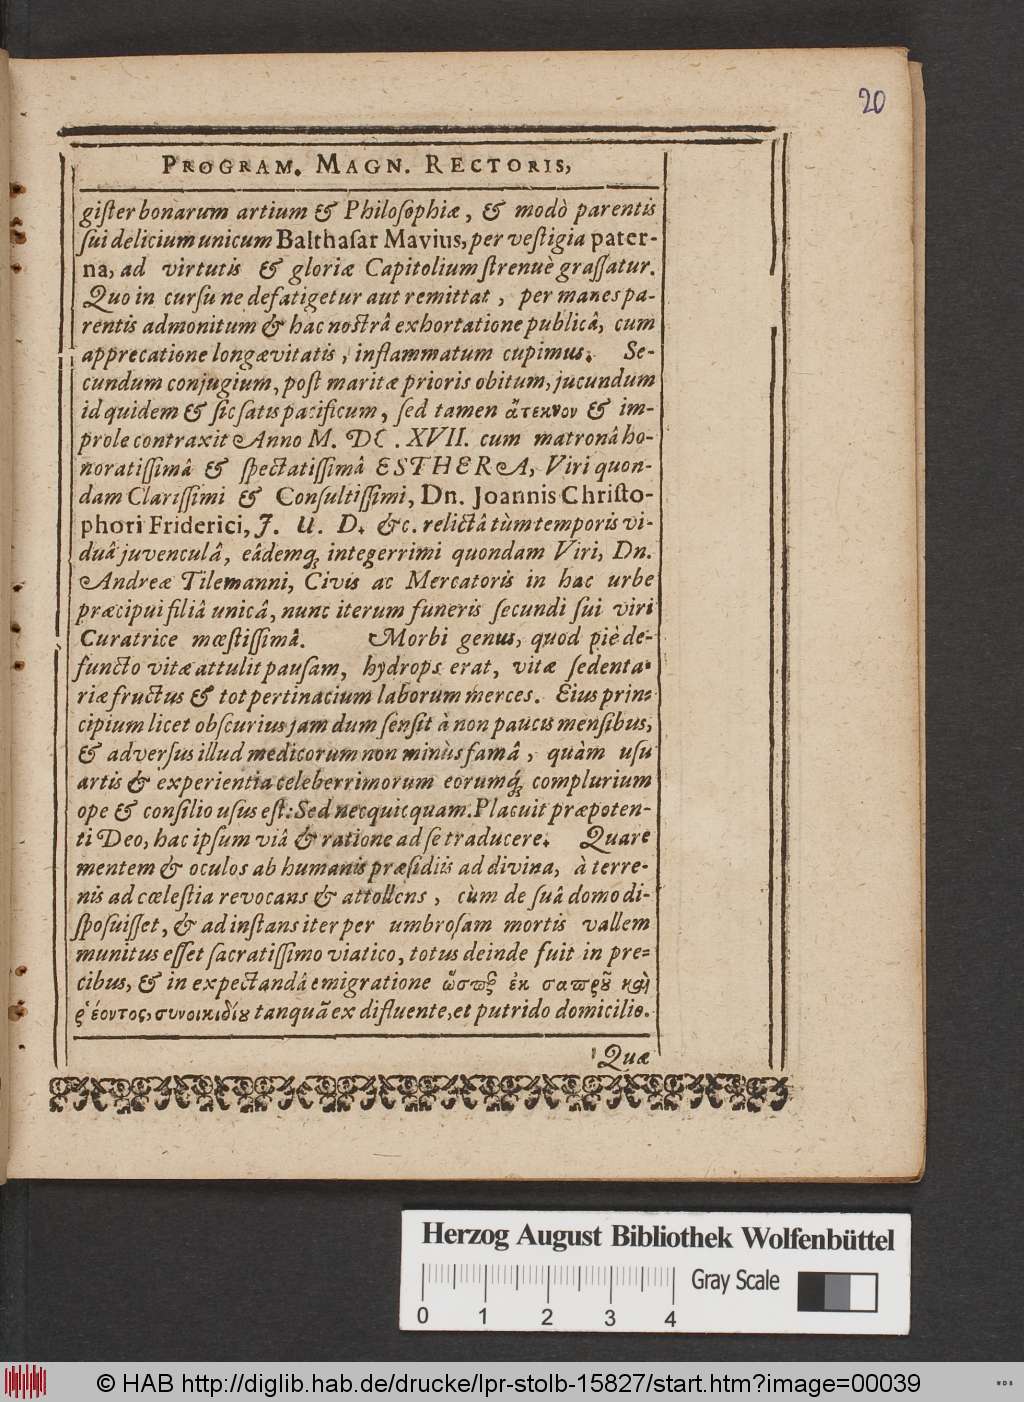 20
PROGRAM. MAGN. RECTORIS,
giſter bonarum artium & Philoſophiæ, & modò parentis
ſui delicium unicum Balthaſar Mavius, per veſtigia pater-
na, ad virtutis & gloriæ Capitolium ſtrenuè graſſatur.
Quo in curſu ne defatigetur aut remittat, per manes pa-
rentis admonitum & hac noſtrâ exhortatione publicâ, cum
apprecatione longævitatis, inflammatum cupimus. Se-
cundum conjugium, poſt maritæ prioris obitum, jucundum
id quidem & ſic ſatis pacificum, ſed tamen ἄτεκνον & im-
prole contraxit Anno M. DC. XVII. cum matronâ ho-
noratiſſimâ & ſpectatiſſimâ ESTHERA, Viri quon-
dam Clariſſimi & Conſultiſſimi, Dn. Joannis Chriſto-
phori Friderici, J. U. D. &c. relictâ tùm temporis vi-
duâ juvenculâ, eâdemq́; integerrimi quondam Viri, Dn.
Andreæ Tilemanni, Civis ac Mercatoris in hac urbe
præcipui filiâ unicâ, nunc iterum funeris ſecundi ſui viri
Curatrice mœſtiſſimâ. Morbi genus, quod piè de-
functo vitæ attulit pauſam, hydrops erat, vitæ ſedenta-
riæ fructus & tot pertinacium laborum merces. Eius prin-
cipium licet obſcurius jam dum ſenſit à non paucis menſibus,
& adverſus illud medicorum non minùs famâ, quàm uſu
artis & experientia celeberrimorum eorumq́; complurium
ope & conſilio uſus eſt: Sed necquicquam. Placuit præpoten-
ti Deo, hac ipſum viâ & ratione ad ſe traducere. Quare
mentem & oculos ab humanis præſidiis ad divina, à terre-
nis ad cœleſtia revocans & attollens, cùm de ſuâ domo di-
ſpoſuiſſet, & ad inſtans iter per umbroſam mortis vallem
munitus eſſet ſacratiſſimo viatico, totus deinde fuit in pre-
cibus, & in expectandâ emigratione ὥσπερ ἐκ σαπροῦ καὶ
ῥέοντος, συνοικιδίου tanquã ex difluente, et putrido domicilio.
Quæ
Herzog August Bibliothek Wolfenbüttel
Gray Scale
0 1 2 3 4
© HAB http://diglib.hab.de/drucke/lpr-stolb-15827/start.htm?image=00039